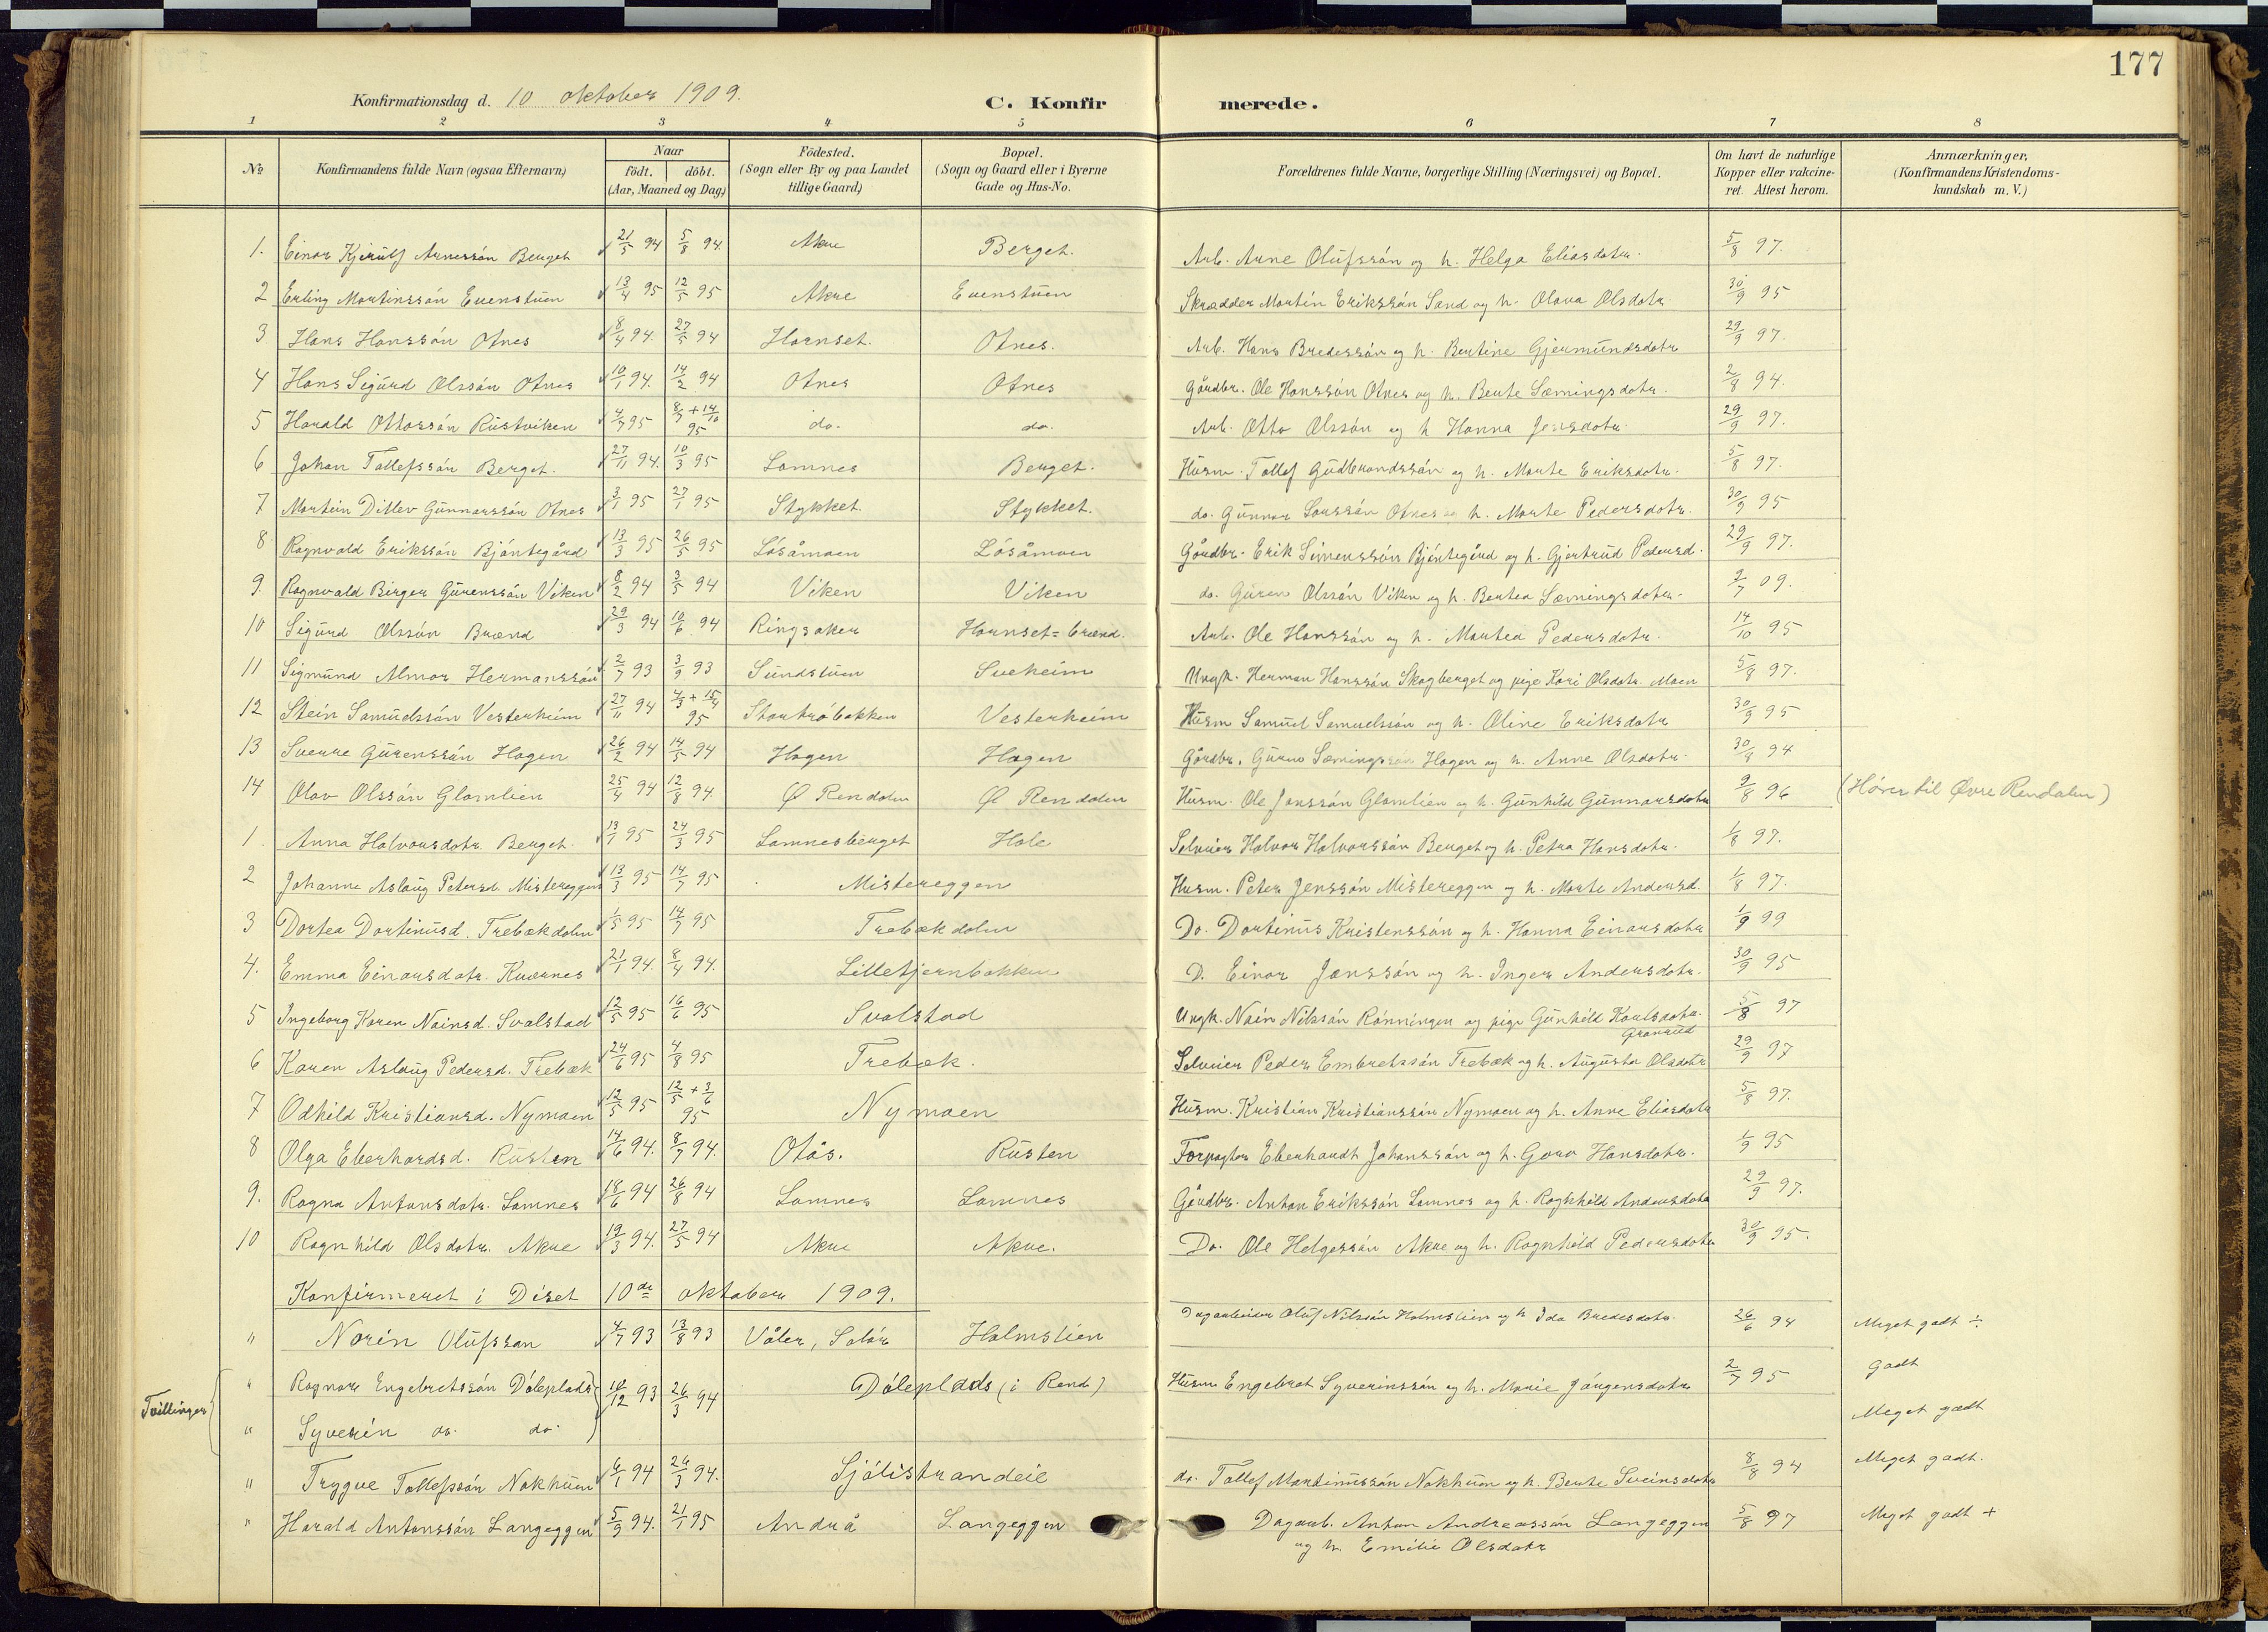 177
Konfirmationsdag d. 10 oktober 1909. C. Konfirmerede.
1 2 3 4 5 6 7 8
No Konfirmandens fulde Navn (ogsaa Efternavn) Naar födt. döbt. (Aar, Maaned og Dag) Födested. (Sogn eller By og paa Landet tillige Gaard) Bopæl. (Sogn og Gaard eller i Byerne Gade og Hus-No. Forældrenes fulde Navne, borgerlige Stilling (Næringsvei) og Bopæl. Om havt de naturlige Kopper eller vakcineret. Attest herom. Anmærkninger, (Konfirmandens Kristendomskundskab m. V.)
1. Einar Kjerulf Arnessön Berget 21/5 94 5/8 94. Akre Berget. Arb. Arne Olufssön og h. Helga Eliasdotr. 5/8 97.
2 Erling Martinssön Evenstuen 13/4 95 12/5 95 Akre Evenstuen Skrædder Martin Erikssön Sand og h. Olava Olsdotr. 30/9 95
3. Hans Hanssön Otnes 8/4 94. 27/5 94 Hornset. Otnes. Arb. Hans Bredessön og h. Bertine Gjermundsdotr 29/9 97.
4 Hans Sigurd Olssön Otnes 10/1 94. 14/2 94 Otnes Otnes Gårdbr. Ole Hanssön Otnes og h. Berte Sæmingsdotr. 2/8 94.
5 Harald Ottossön Rustviken 4/7 95 8/7 + 14/10 95 do. do. Arb. Otto Olssön og h Hanna Jensdotr. 29/9 97.
6 Johan Tollefssön Berget. 27/11 94. 10/3 95 Lomnes Berget. Husm. Tollef Gudbrandssön og h. Marte Eriksdotr. 5/8 97.
7 Martin Ditlev Gunnarssön Otnes 3/1 95 27/1 95 Stykket. Stykket. do. Gunnar Larssön Otnes og h. Marte Pedersdotr. 30/9 95
8 Ragnvald Erikssön Bjöntegård 13/3 95 26/5 95 Lösåmoen Lösåmoen Gårdbr. Erik Simenssön Bjöntegård og h. Gjertrud Pedersd. 29/9 97.
9. Ragnvald Birger Gurenssön Viken 8/2 94 3/5 94 Viken Viken do. Guren Olssön Viken og h. Bertea Sæmingsdotr. 9/7 09.
10 Sigurd Olssön Brænd 29/3 94 10/6 94 Ringsaker Hornset=brænd. Arb. Ole Hanssön og h. Martea Pedersdotr. 14/10 95
11 Sigmund Almar Hermanssön 2/7 93 3/9 93 Sundstuen Sveheim Ungk. Herman Hanssön Skogberget og pige Kari Olsdotr. Moen 5/8 97.
12 Stein Samuelssön Vesterheim 27/11 94 4/3 + 15/4 95 Stortröbakken Vesterheim Husm Samuel Samuelssön og h. Oline Eriksdotr 30/9 95
13 Sverre Gurenssön Hagen 26/2 94 14/5 94 Hagen Hagen Gårdbr. Guren Sæmingssön Hagen og h. Anne Olsdotr. 30/9 94
14 Olav Olssön Glomlien 25/4 94 12/8 94. Ø Rendalen Ø Rendalen Husm. Ole Janssön Glomlien og h. Gunhild Gunnarsdotr 9/8 96 (Hörer til Øvre Rendalen)
1. Anna Halvorsdotr. Berget. 13/1 95 24/3 95 Lomnesberget Hole Selveier Halvor Halvorssön Berget og h. Petra Hansdotr. 1/8 97.
2 Johanne Aslaug Petersd. Mistereggen 13/3 95 14/7 95 Mistereggen Husm. Peter Jenssön Mistereggen og h. Marte Andersd. 1/8 97.
3 Dortea Dortinusd. Trebækdalen 1/5 95 14/7 95 Trebækdalen Do. Dortinus Kristenssön og h. Hanna Einarsdotr 1/9 99
4. Emma Einarsdotr. Kværnes 21/1 94. 8/4 94. Lilletjernbakken D. Einar Janssön og h. Inger Andersdotr. 30/9 95
5 Ingeborg Karen Nainsd. Svalstad 12/5 95 16/6 95 Svalstad Ungk. Nain Nilssön Rönningen og pige Gunhild Karlsdotr. Granrud 5/8 97
6 Karen Aslaug Pedersd. Trebæk 24/6 95 4/8 95 Trebæk. Selveier Peder Embretssön Trebæk og h. Augusta Olsdotr 29/9 97
7 Odhild Kristiansd. Nymoen 12/5 95 12/5 + 3/6 95 Nymoen Husm. Kristian Kristianssön Nymoen og h. Anne Eliasdotr 5/8 97.
8 Olga Eberhardsd. Rusten 14/6 94. 8/7 94. Otås. Rusten Forpagter Eberhardt Johanssön og h. Goro Hansdotr. 1/9 95
9. Ragna Antonsdotr. Lomnes 18/6 94 26/8 94 Lomnes Lomnes Gårdbr. Anton Erikssön Lomnes og h. Ragnhild Andersdotr 29/9 97.
10 Ragnhild Olsdotr. Akre 19/3 94. 27/5 94 Akre Akre. Do. Ole Helgessön Akre og h. Ragnhild Pedersdotr 30/9 95.
Konfirmeret i Diset 10de oktober 1909.
" Norin Olufssøn 4/7 93 13/8 93 Våler, Solör Holmslien Dagarbeider Oluf Nilssön Holmslien og h Ida Bredesdotr. 26/6 94 Meget godt ÷
Tvillinger
" Ragnar Engebretssön Döleplads 10/12 93 26/3 94 Döleplads (i Rend.) Husm Engebret Syverinssön og h. Marie Jörgensdotr 2/7 95 Godt
" Syverin do. do. Meget godt
" Trygve Tollefssön Nokhuen 6/1 94 26/3 94. Sjölistrandeie do. Tollef Martinussön Nokhuen og h. Berte Sveinsdotr 8/8 94 Meget godt.
" Harald Antonssön Langeggen 5/9 94. 21/1 95 Andrå Langeggen Dagarb. Anton Andreassön Langeggen 5/8 97 Meget godt +
og h. Emilie Olsdotr